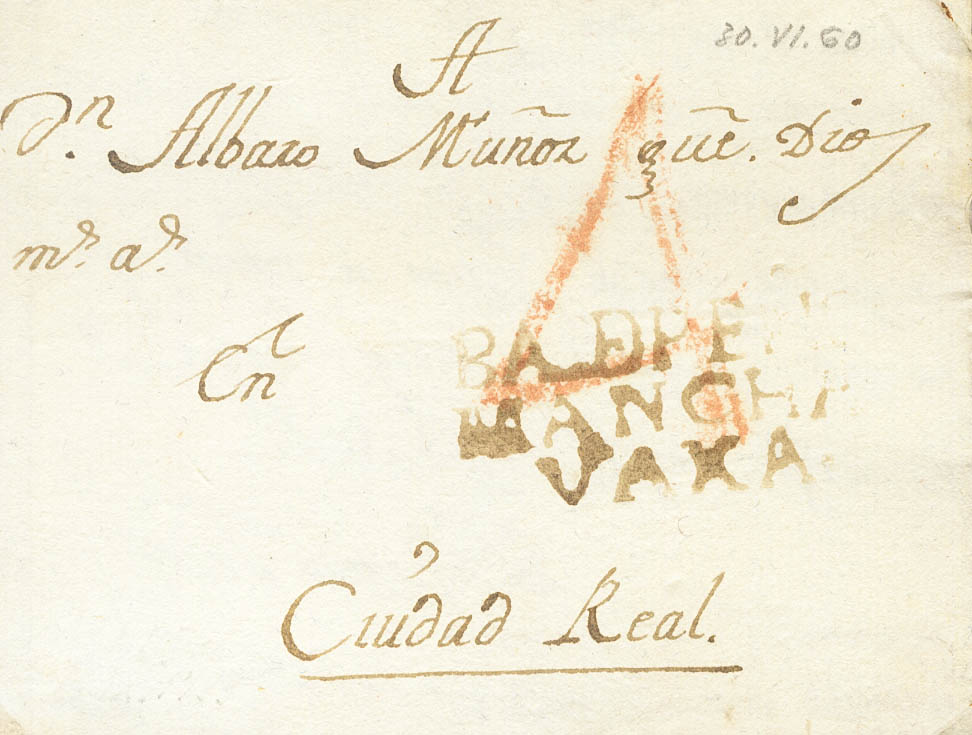 30.VI.60
A
Dn. Albaro Muñoz que. Dios
ms. as.
En
BA DPEÑ
MANCHA
VAXA.
Ciudad Real.